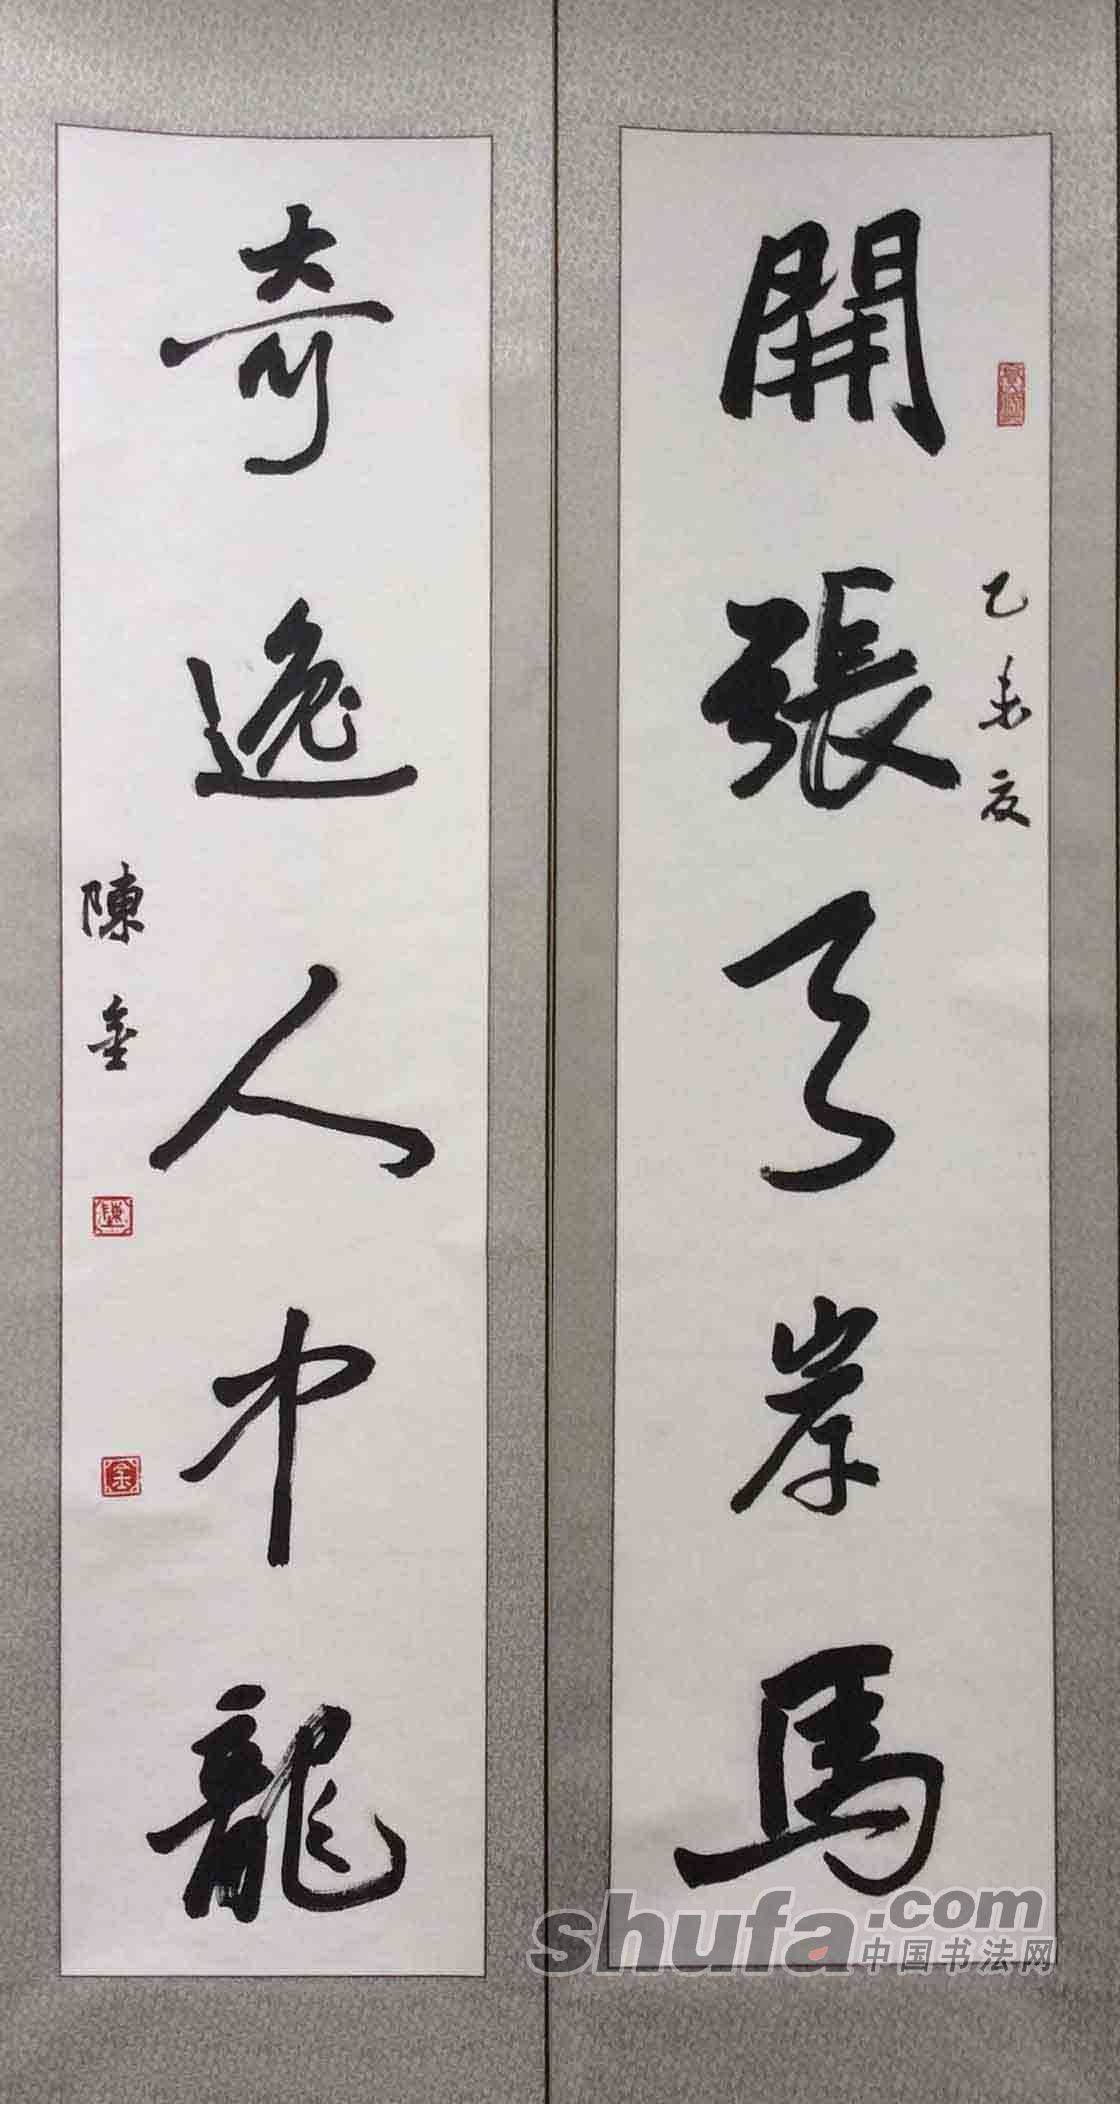 開張天岸馬
乙未夏
奇逸人中龍
陳金
shufa.com
中国书法网